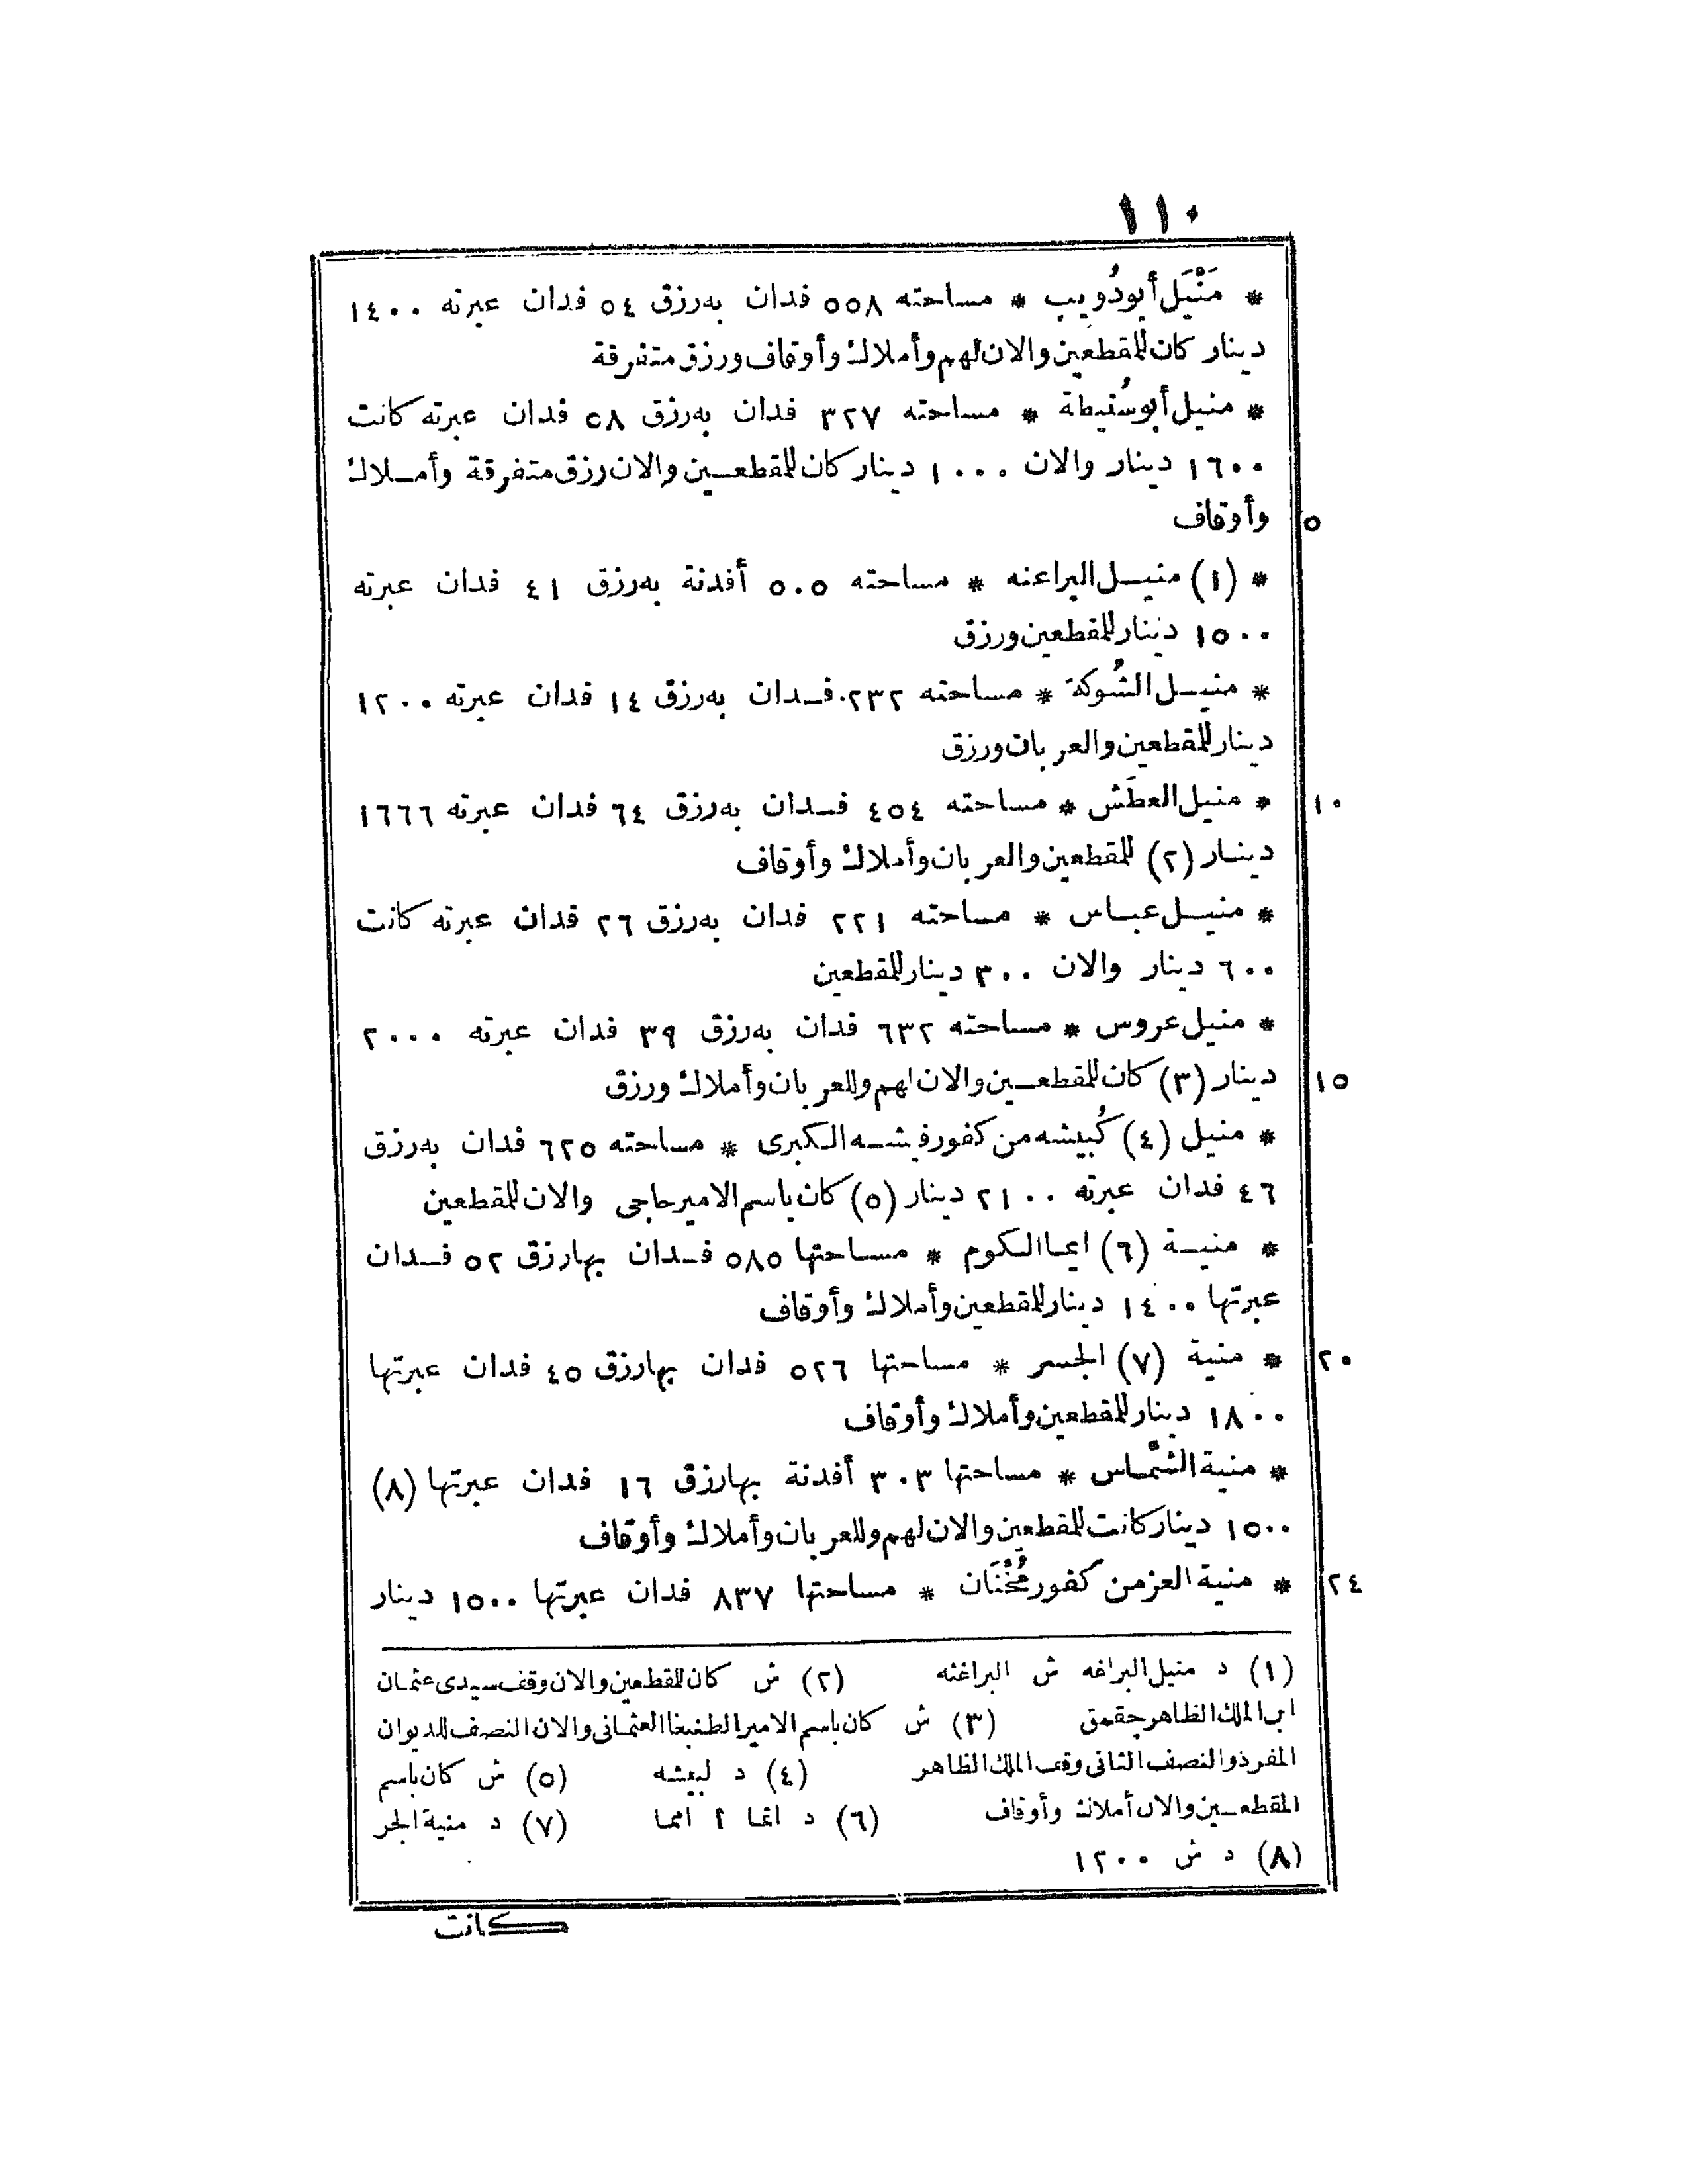 ١١٠
* مَنْيَل أبو دُويب * مساحته ٥٥٨ فدان به رزق ٥٤ فدان عبرته ١٤٠٠
دينار كان للمقطعين والان لهم وأملاك وأوقاف ورزق متفرقة
* منيل أبو سُنيطة * مساحته ٣٢٧ فدان به رزق ٥٨ فدان عبرته كانت
١٦٠٠ دينار والان ١٠٠٠ دينار كان للمقطعين والان رزق متفرقة وأملاك
وأوقاف ٥
* (١) منيل البراعنه * مساحته ٥٠٥ أفدنة به رزق ٤١ فدان عبرته
١٥٠٠ دينار للمقطعين ورزق
* منيل الشُوكة * مساحته ٢٣٢ فدان به رزق ١٤ فدان عبرته ١٢٠٠
دينار للمقطعين والعربان ورزق
* منيل العطَش * مساحته ٤٥٤ فدان به رزق ٦٤ فدان عبرته ١٦٦٦ ١٠
دينار (٢) للمقطعين والعربان وأملاك وأوقاف
* منيل عباس * مساحته ٢٢١ فدان به رزق ٢٦ فدان عبرته كانت
٦٠٠ دينار والان ٣٠٠ دينار للمقطعين
* منيل عروس * مساحته ٦٣٢ فدان به رزق ٣٩ فدان عبرته ٢٠٠٠
دينار (٣) كان للمقطعين والان لهم وللعربان وأملاك ورزق ١٥
* منيل (٤) كُبيشه من كفور فيشه الكبرى * مساحته ٦٢٥ فدان به رزق
٤٦ فدان عبرته ٢١٠٠ دينار (٥) كان باسم الامير حاجى والان للمقطعين
* منية (٦) ايما الكوم * مساحتها ٥٨٥ فدان بها رزق ٥٢ فدان
عبرتها ١٤٠٠ دينار للمقطعين وأملاك وأوقاف
* منية (٧) الجسر * مساحتها ٥٢٦ فدان بها رزق ٤٥ فدان عبرتها ٢٠
١٨٠٠ دينار للمقطعين وأملاك وأوقاف
* منية الشمّاس * مساحتها ٣٠٣ أفدنة بها رزق ١٦ فدان عبرتها (٨)
١٥٠٠ دينار كانت للمقطعين والان لهم وللعربان وأملاك وأوقاف
* منية العز من كفور مُخْنَان * مساحتها ٨٣٧ فدان عبرتها ١٥٠٠ دينار ٢٤
(١) د منيل البراغه ش البراغثه (٢) ش كان للمقطعين والان وقف سيدى عثمان
ابن الملك الظاهر جقمق (٣) ش كان باسم الامير الطنبغا العثمانى والان النصف للديوان
المفرد والنصف الثانى وقف الملك الظاهر (٤) د لبيشه (٥) ش كان باسم
المقطعين والان أملاك وأوقاف (٦) د انما ٢ امما (٧) د منية الجر
(٨) د ش ١٢٠٠
كانت